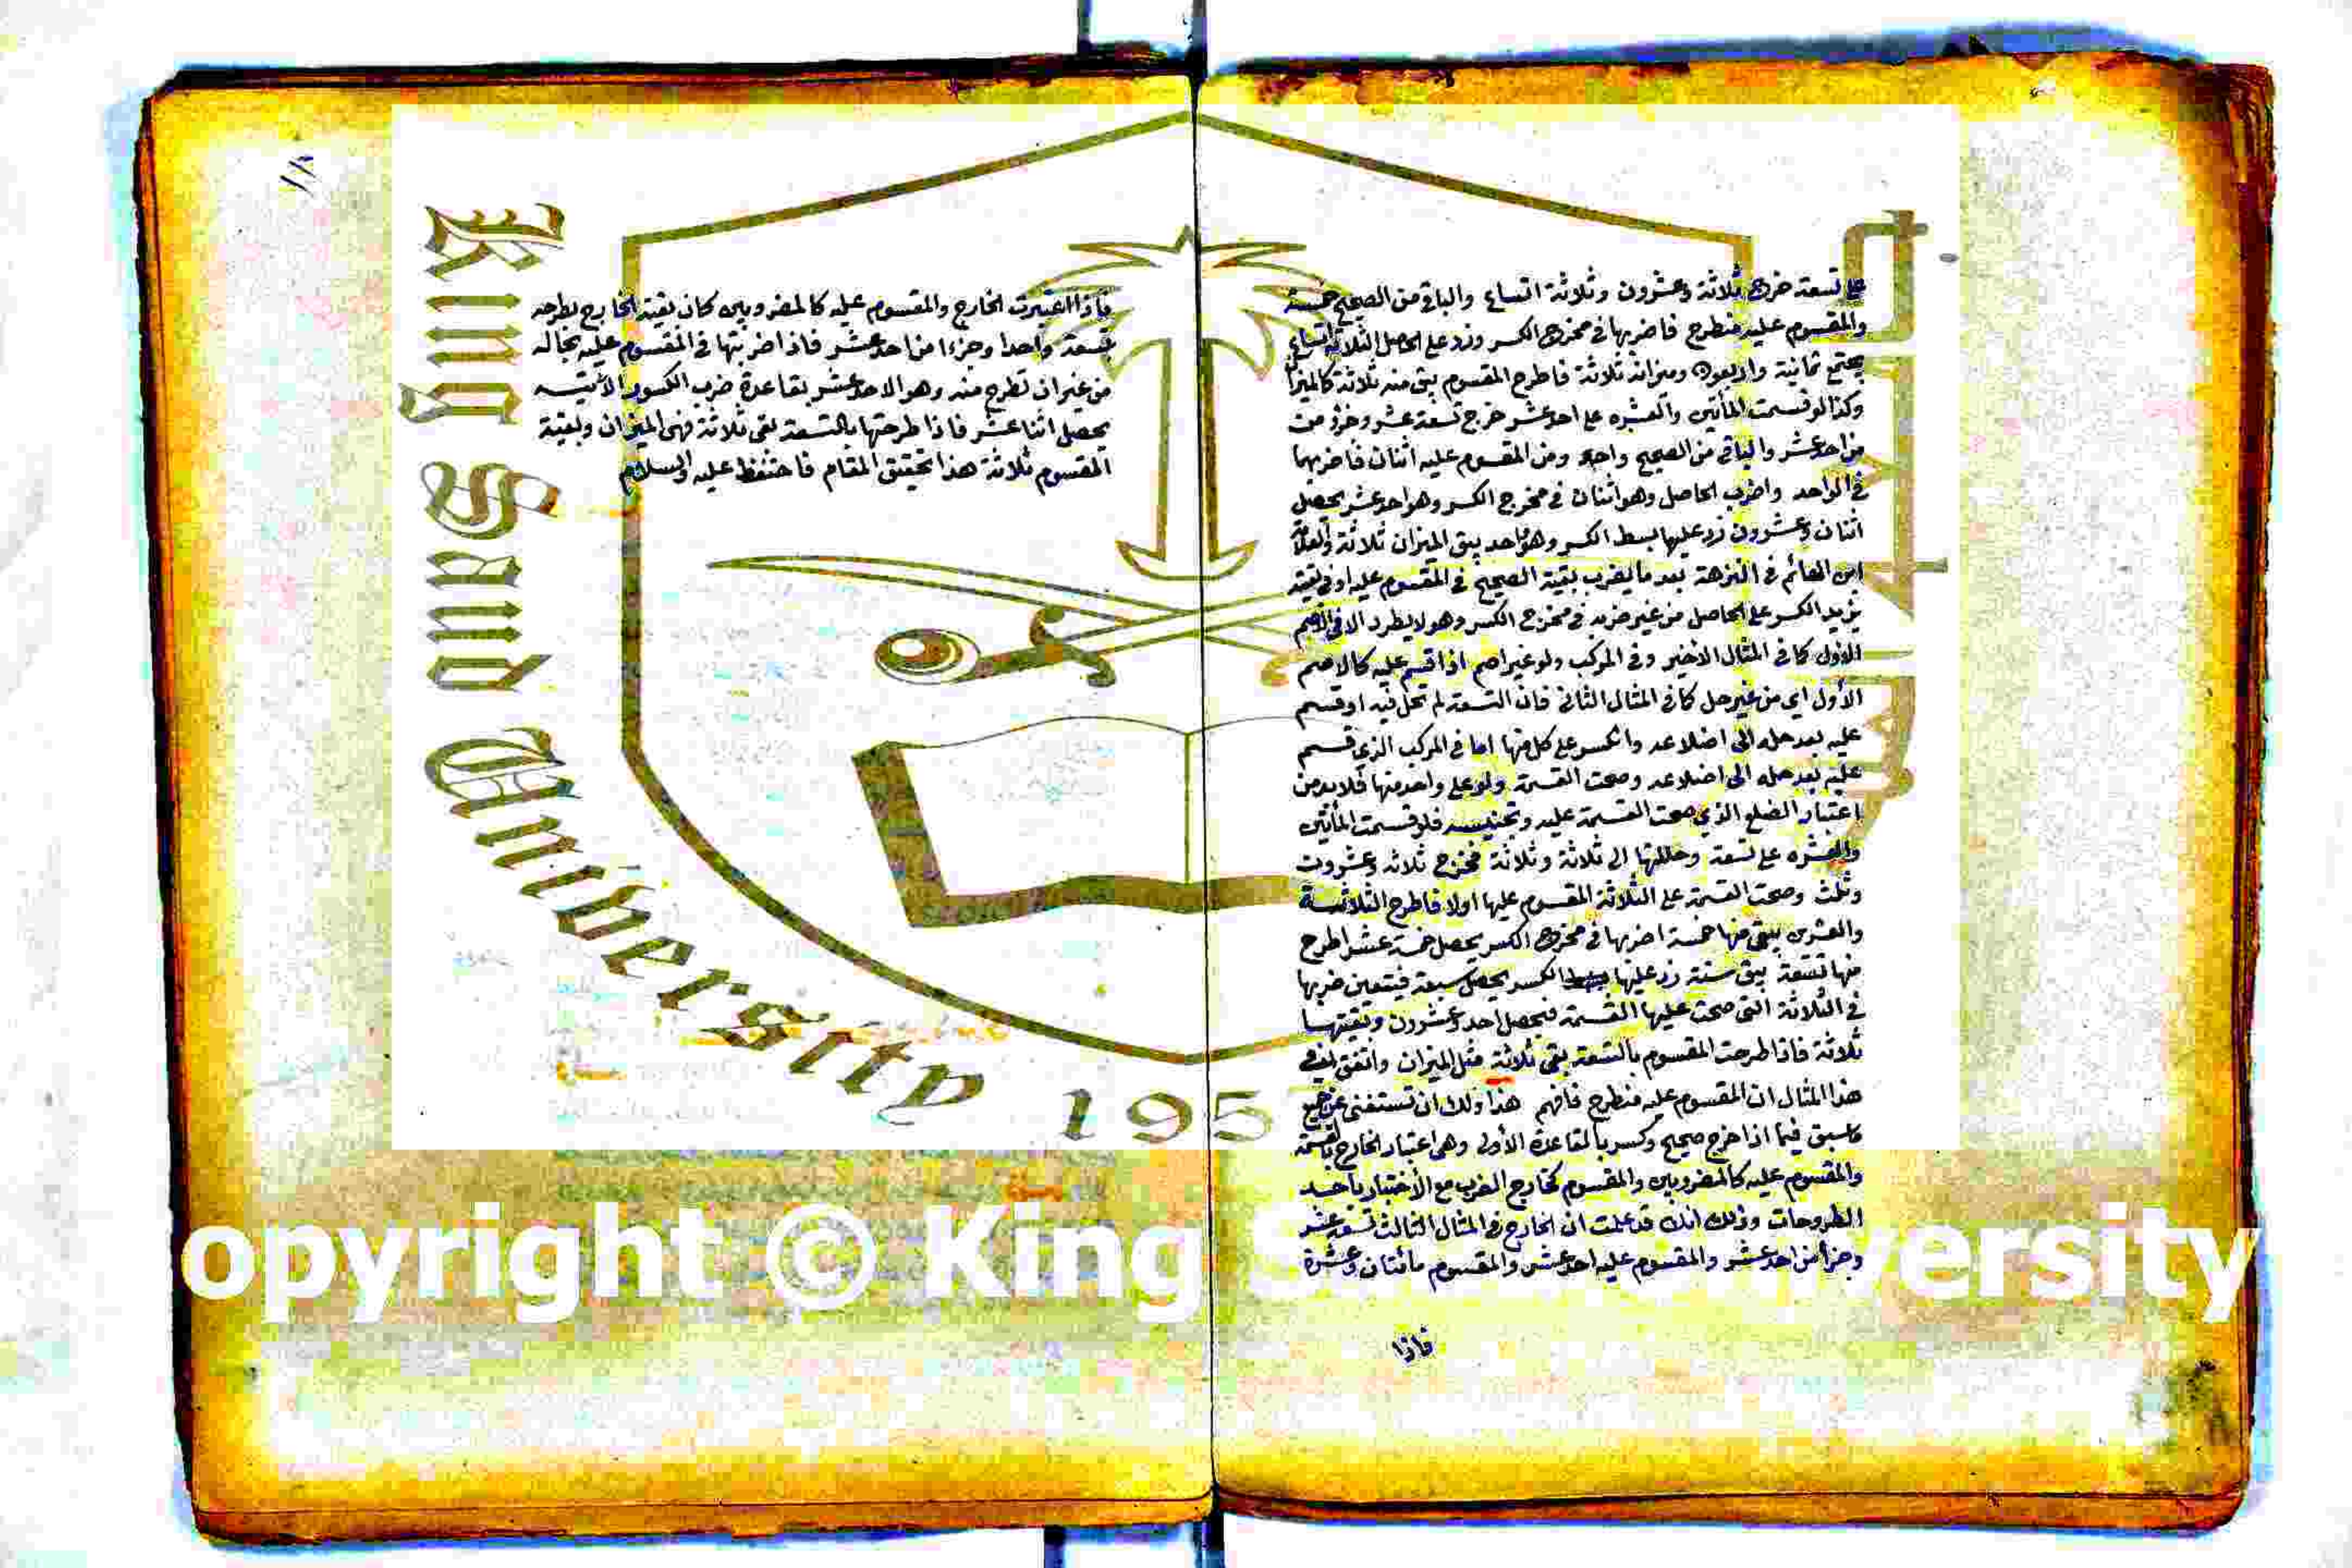 على تسعة خرج ثلاثة وعشرون وثلاثة اتساع والباقي من الصحيح خمسة
والمقسوم عليه منطرح فاضربها في مخرج الكسر وزد على الحاصل الثلاثة اتساع
يجتمع ثمانية واربعون وميزانه ثلاثة فاطرح المقسوم يبقى منه ثلاثة كالميزان
وكذا لو قسمت المأتين والعشره على احد عشر خرج تسعة عشر وجزؤ من
من احد عشر والباقي من الصحيح واحد ومن المقسوم عليه اثنان فاضربهما
في الواحد واضرب الحاصل وهو اثنان في مخرج الكسر وهو احد عشر يحصل
اثنان وعشرون زد عليها بسط الكسر وهو واحد يبقى الميزان ثلاثة والعلامة
ابن الهائم في النزهة بعد ما يضرب بقية الصحيح في المقسوم عليه او في بقيته
يزيد الكسر على الحاصل من غير ضربه في مخرج الكسر وهو لا يطرد الا في الاصم
الاول كما في المثال الاخير وفي المركب ولو غير اصم اذا قسم عليه كالاصم
الأول اي من غير حل كما في المثال الثاني فان التسعة لم تحل فيه او قسم
عليه بعد حله الى اضلاعه وانكسر على كل منها اما في المركب الذي قسم
عليه بعد حله الى اضلاعه وصحت القسمة ولو على واحد منها فلا بد من
اعتبار الضلع الذي صحت القسمة عليه وتجنيسه فلو قسمت المأتين
والعشره على تسعة وحللتها الى ثلاثة وثلاثة فخرج ثلاثه وعشروت
وثلث وصحت القسمة على الثلاثة المقسوم عليها اولا فاطرح الثلاثة
والعشرين يبقى منها خمسة اضربها في مخرج الكسر يحصل خمسة عشر اطرح
منها تسعة يبقى ستة زد عليها الكسر يحصل سبعة فيتعين ضربها
في الثلاثة التي صحت عليها القسمة فيحصل احد وعشرون وبقيتها
ثلاثة فاذا طرحت المقسوم بالتسعة بقى ثلاثة مثل الميزان واتفق في
هذا المثال ان المقسوم عليه منطرح فافهم هذا ولك ان تستغنى عن جميع
ما سبق فيما اذا خرج صحيح وكسر بالقاعدة الأولى وهي اعتبار الخارج بالقسمة
والمقسوم عليه كالمضروبين والمقسوم كخارج الضرب مع الأختبار باحد
الطروحات وذلك انك قد علمت ان الخارج في المثال الثالث تسعة عشر
وجزأ من احد عشر والمقسوم عليه احد عشر والمقسوم مائتان وعشرة
فاذا
فاذا اعتبرت الخارج والمقسوم عليه كالمضروبين كان بقية الخارج بطرحه
تسعة واحدا وجزءا من احد عشر فاذا ضربتها في المقسوم عليه بحاله
من غير ان تطرح منه وهو الاحد عشر بقاعدة ضرب الكسور الآتيه
يحصل اثنا عشر فاذا طرحتها بالتسعة بقى ثلاثة فهى الميزان وبقية
المقسوم ثلاثة هذا تحقيق المقام فاحتفظ عليه والسلام
King Saud University
1957
opyright © King Saud University